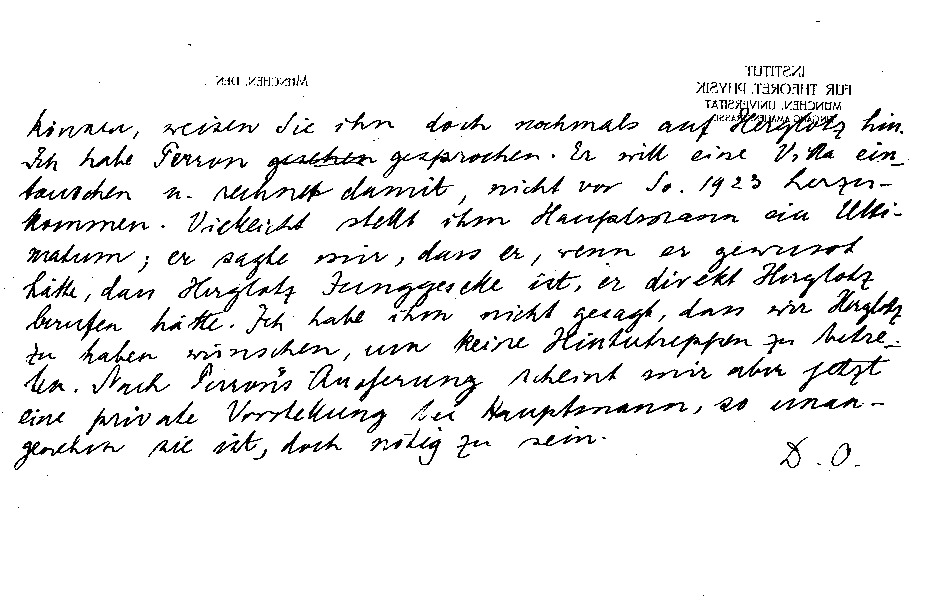 INSTITUT
FÜR THEORET. PHYSIK
MÜNCHEN, UNIVERSITÄT
MÜNCHEN, DEN
können, weisen Sie ihn doch nochmals auf Herglotz hin.
Ich habe Perron gesehen gesprochen. Er will eine Villa ein-
tauschen u. rechnet damit, nicht vor So. 1923 herzu-
kommen. Vielleicht stellt ihm Hauptmann ein Ulti-
matum; er sagte mir, dass er, wenn er gewusst
hätte, dass Herglotz Junggeselle ist, er direkt Herglotz
berufen hätte. Ich habe ihm nicht gesagt, dass wir Herglotz
zu haben wünschen, um keine Hintertreppen zu betre-
ten. Nach Perron's Äusserung scheint mir aber jetzt
eine private Vorstellung bei Hauptmann, so unan-
genehm sie ist, doch nötig zu sein.
D. O.